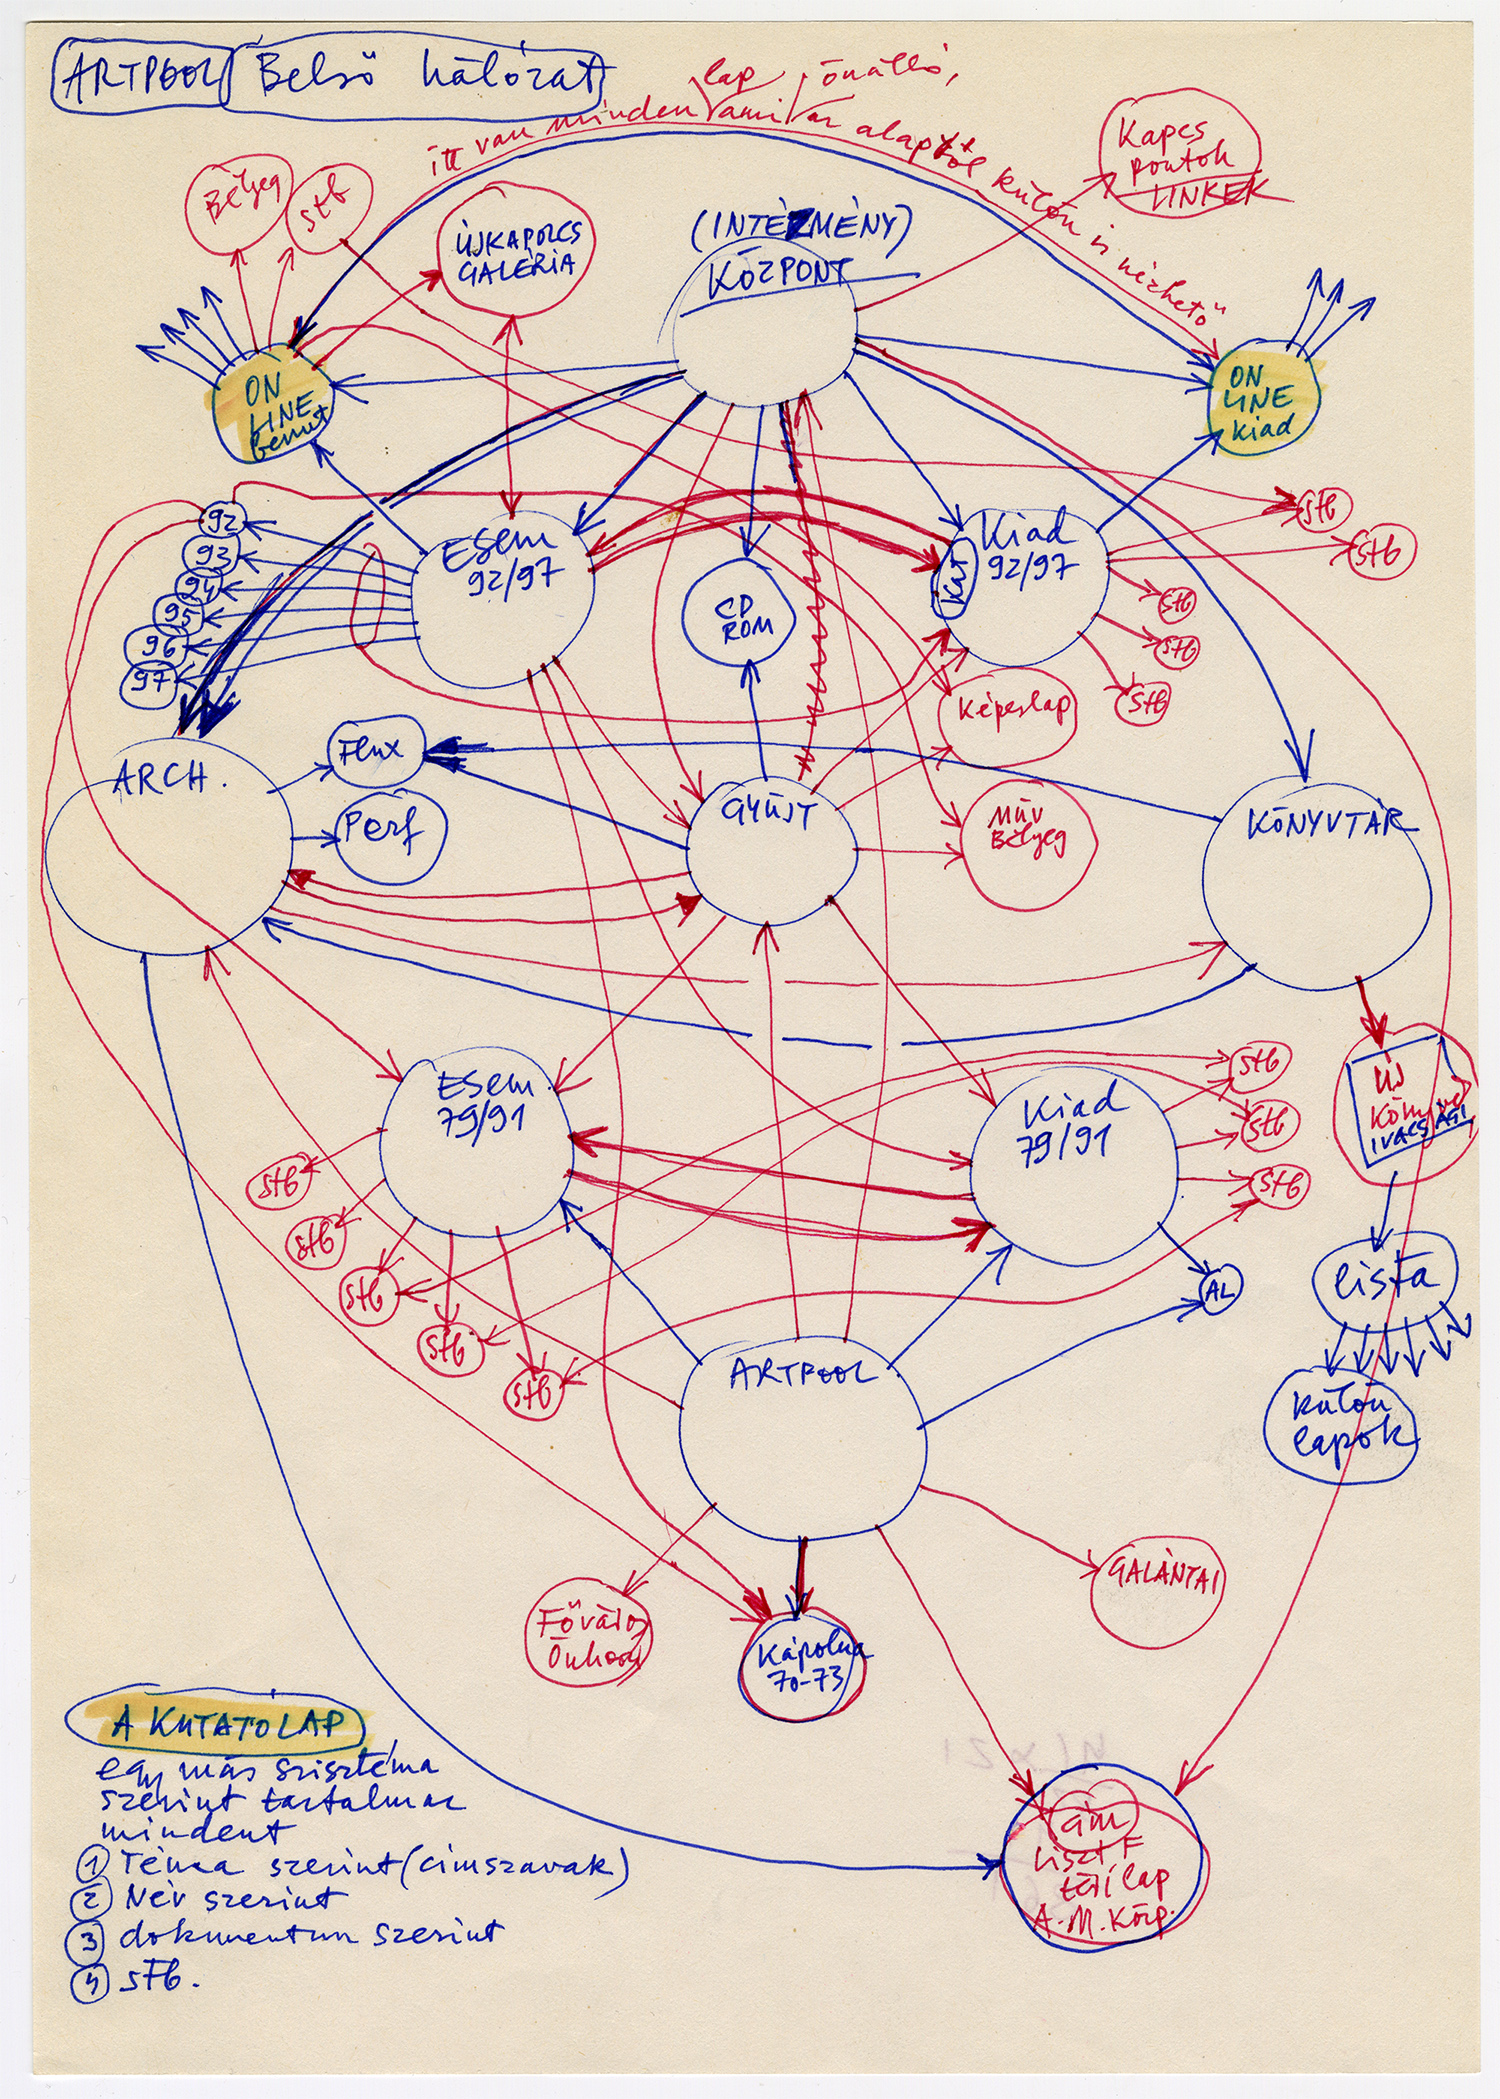 ARTPOOL Belső hálózat
lap, önálló,
itt van minden ami van alaptól külön is nézhető
Kapcs
pontok
LINKEK
Bélyeg
stb
ÚJKAPOLCS
GALÉRIA
(INTÉZMÉNY)
KÖZPONT
ON
LINE
bemut
ON
LINE
kiad
92
93
94
95
96
97
Esem
92/97
CD
ROM
Kat
Kiad
92/97
stb
stb
stb
stb
stb
Képeslap
ARCH.
Flux
Perf
GYŰJT
Műv
Bélyeg
KÖNYVTÁR
Esem
79/91
Kiad
79/91
stb
stb
stb
ÚJ
stb
stb
stb
stb
stb
AL
lista
külön
lapok
ARTPOOL
GALÁNTAI
Főváros
Kápolna
70-73
A KUTATÓLAP
egy más szisztéma
szerint tartalmaz
mindent
1 Téma szerint (címszavak)
2 Név szerint
3 dokumentum szerint
4 stb.
cím
Liszt F
téri lap
A.M. Közp.